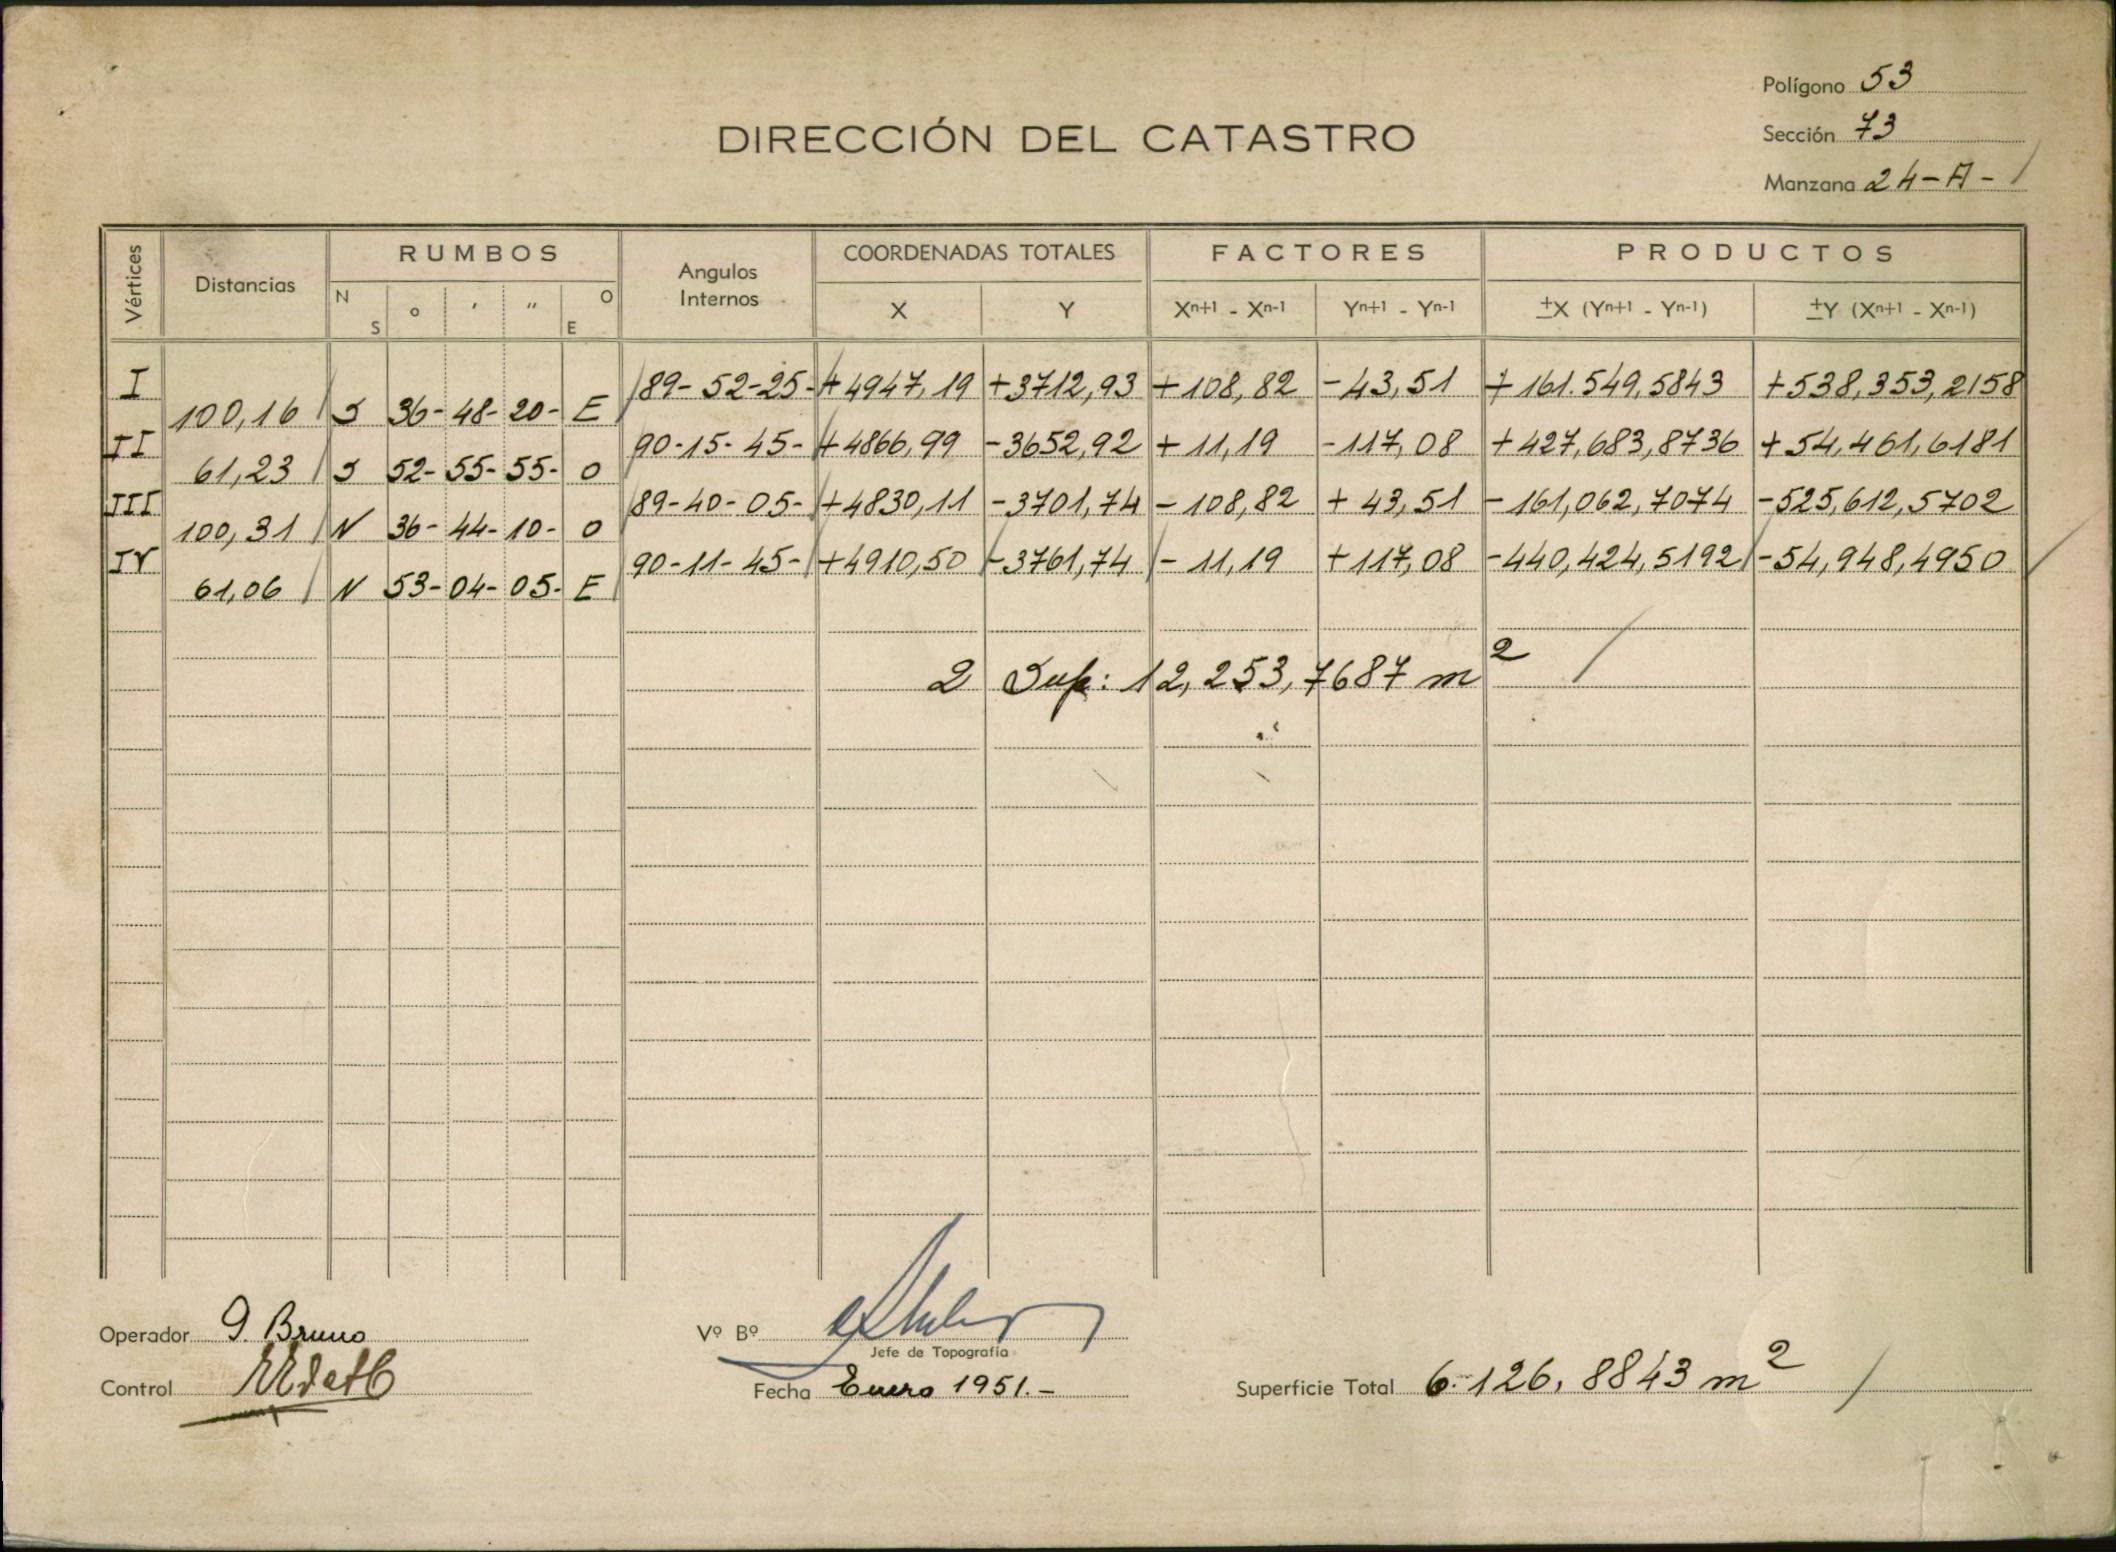 Polígono 53
DIRECCIÓN DEL CATASTRO
Sección 73
Manzana 24-A-
Vértices Distancias RUMBOS Angulos Internos COORDENADAS TOTALES FACTORES PRODUCTOS
N S ° ' " E O X Y Xn+1 - Xn-1 Yn+1 - Yn-1 ±X (Yn+1 - Yn-1) ±Y (Xn+1 - Xn-1)
I 89-52-25- +4947,19 +3712,93 +108,82 -43,51 +161.549,5843 +538,353,2158
100,16 S 36-48-20- E
II 90-15-45- +4866,99 -3652,92 +11,19 -117,08 +427,683,8736 +54,461,6181
61,23 S 52-55-55- O
III 89-40-05- +4830,11 -3701,74 -108,82 +43,51 -161,062,7074 -525,612,5702
100,31 N 36-44-10- O
IV 90-11-45- +4910,50 -3761,74 -11,19 +117,08 -440,424,5192 -54,948,4950
61,06 N 53-04-05- E
2 Sup: 12,253,7687 m2
Operador G. Bruno
Vº Bº
Jefe de Topografía
Control
Fecha Enero 1951.-
Superficie Total 6.126,8843 m2